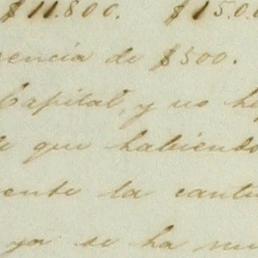 $11.800. $15.0
rencia de $300.
Capital, y no h
que habiendo
ente la cant
ya se ha